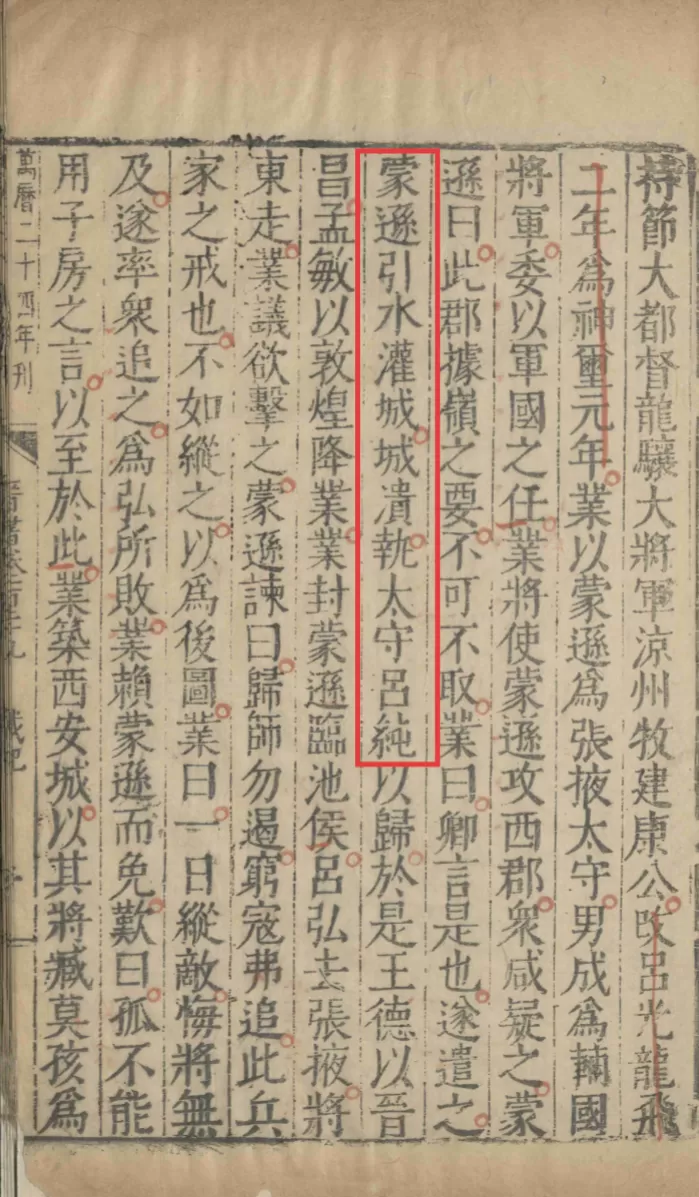 持節大都督龍驤大將軍涼州牧建康公改呂光龍飛
二年爲神璽元年業以蒙遜爲張掖太守男成爲輔國
將軍委以軍國之任業將使蒙遜攻西郡衆咸疑之蒙
遜曰此郡據嶺之要不可不取業曰卿言是也遂遣之
蒙遜引水灌城城潰執太守呂純以歸於是王德以晉
昌孟敏以敦煌降業業封蒙遜臨池侯呂弘去張掖將
東走業議欲擊之蒙遜諫曰歸師勿遏窮寇弗追此兵
家之戒也不如縱之以爲後圖業曰一日縱敵悔將無
及遂率衆追之爲弘所敗業賴蒙遜而免歎曰孤不能
用子房之言以至於此業築西安城以其將臧莫孩爲
萬曆二十四年刊